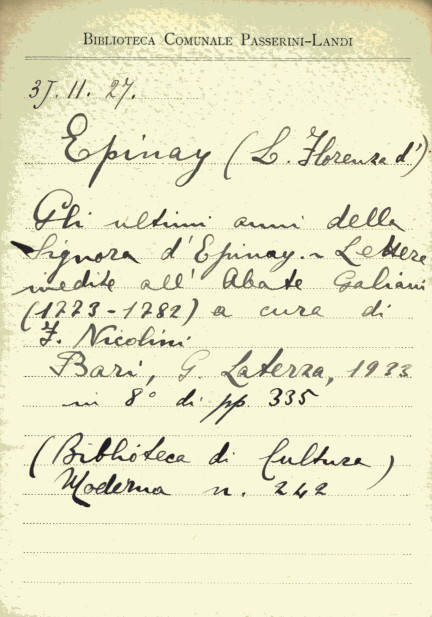 BIBLIOTECA COMUNALE PASSERINI-LANDI
3J. 11. 27.
Epinay (L. Florenza d')
Gli ultimi anni della
Signora d'Epinay. ~ Lettere
inedite all'Abate Galiani
(1773-1782) a cura di
F. Nicolini
Bari, G. Laterza, 1933
in 8° di pp. 335
(Biblioteca di Cultura)
Moderna n. 242